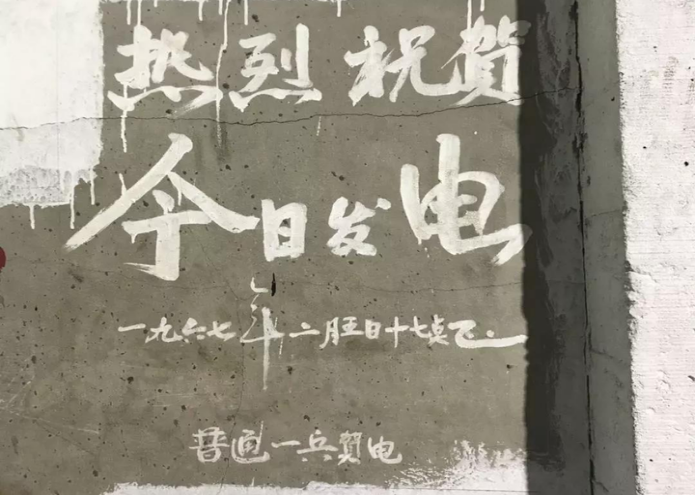 热烈祝賀
今日发电
一九六七年二月五日十七点正.
普通一兵賀电